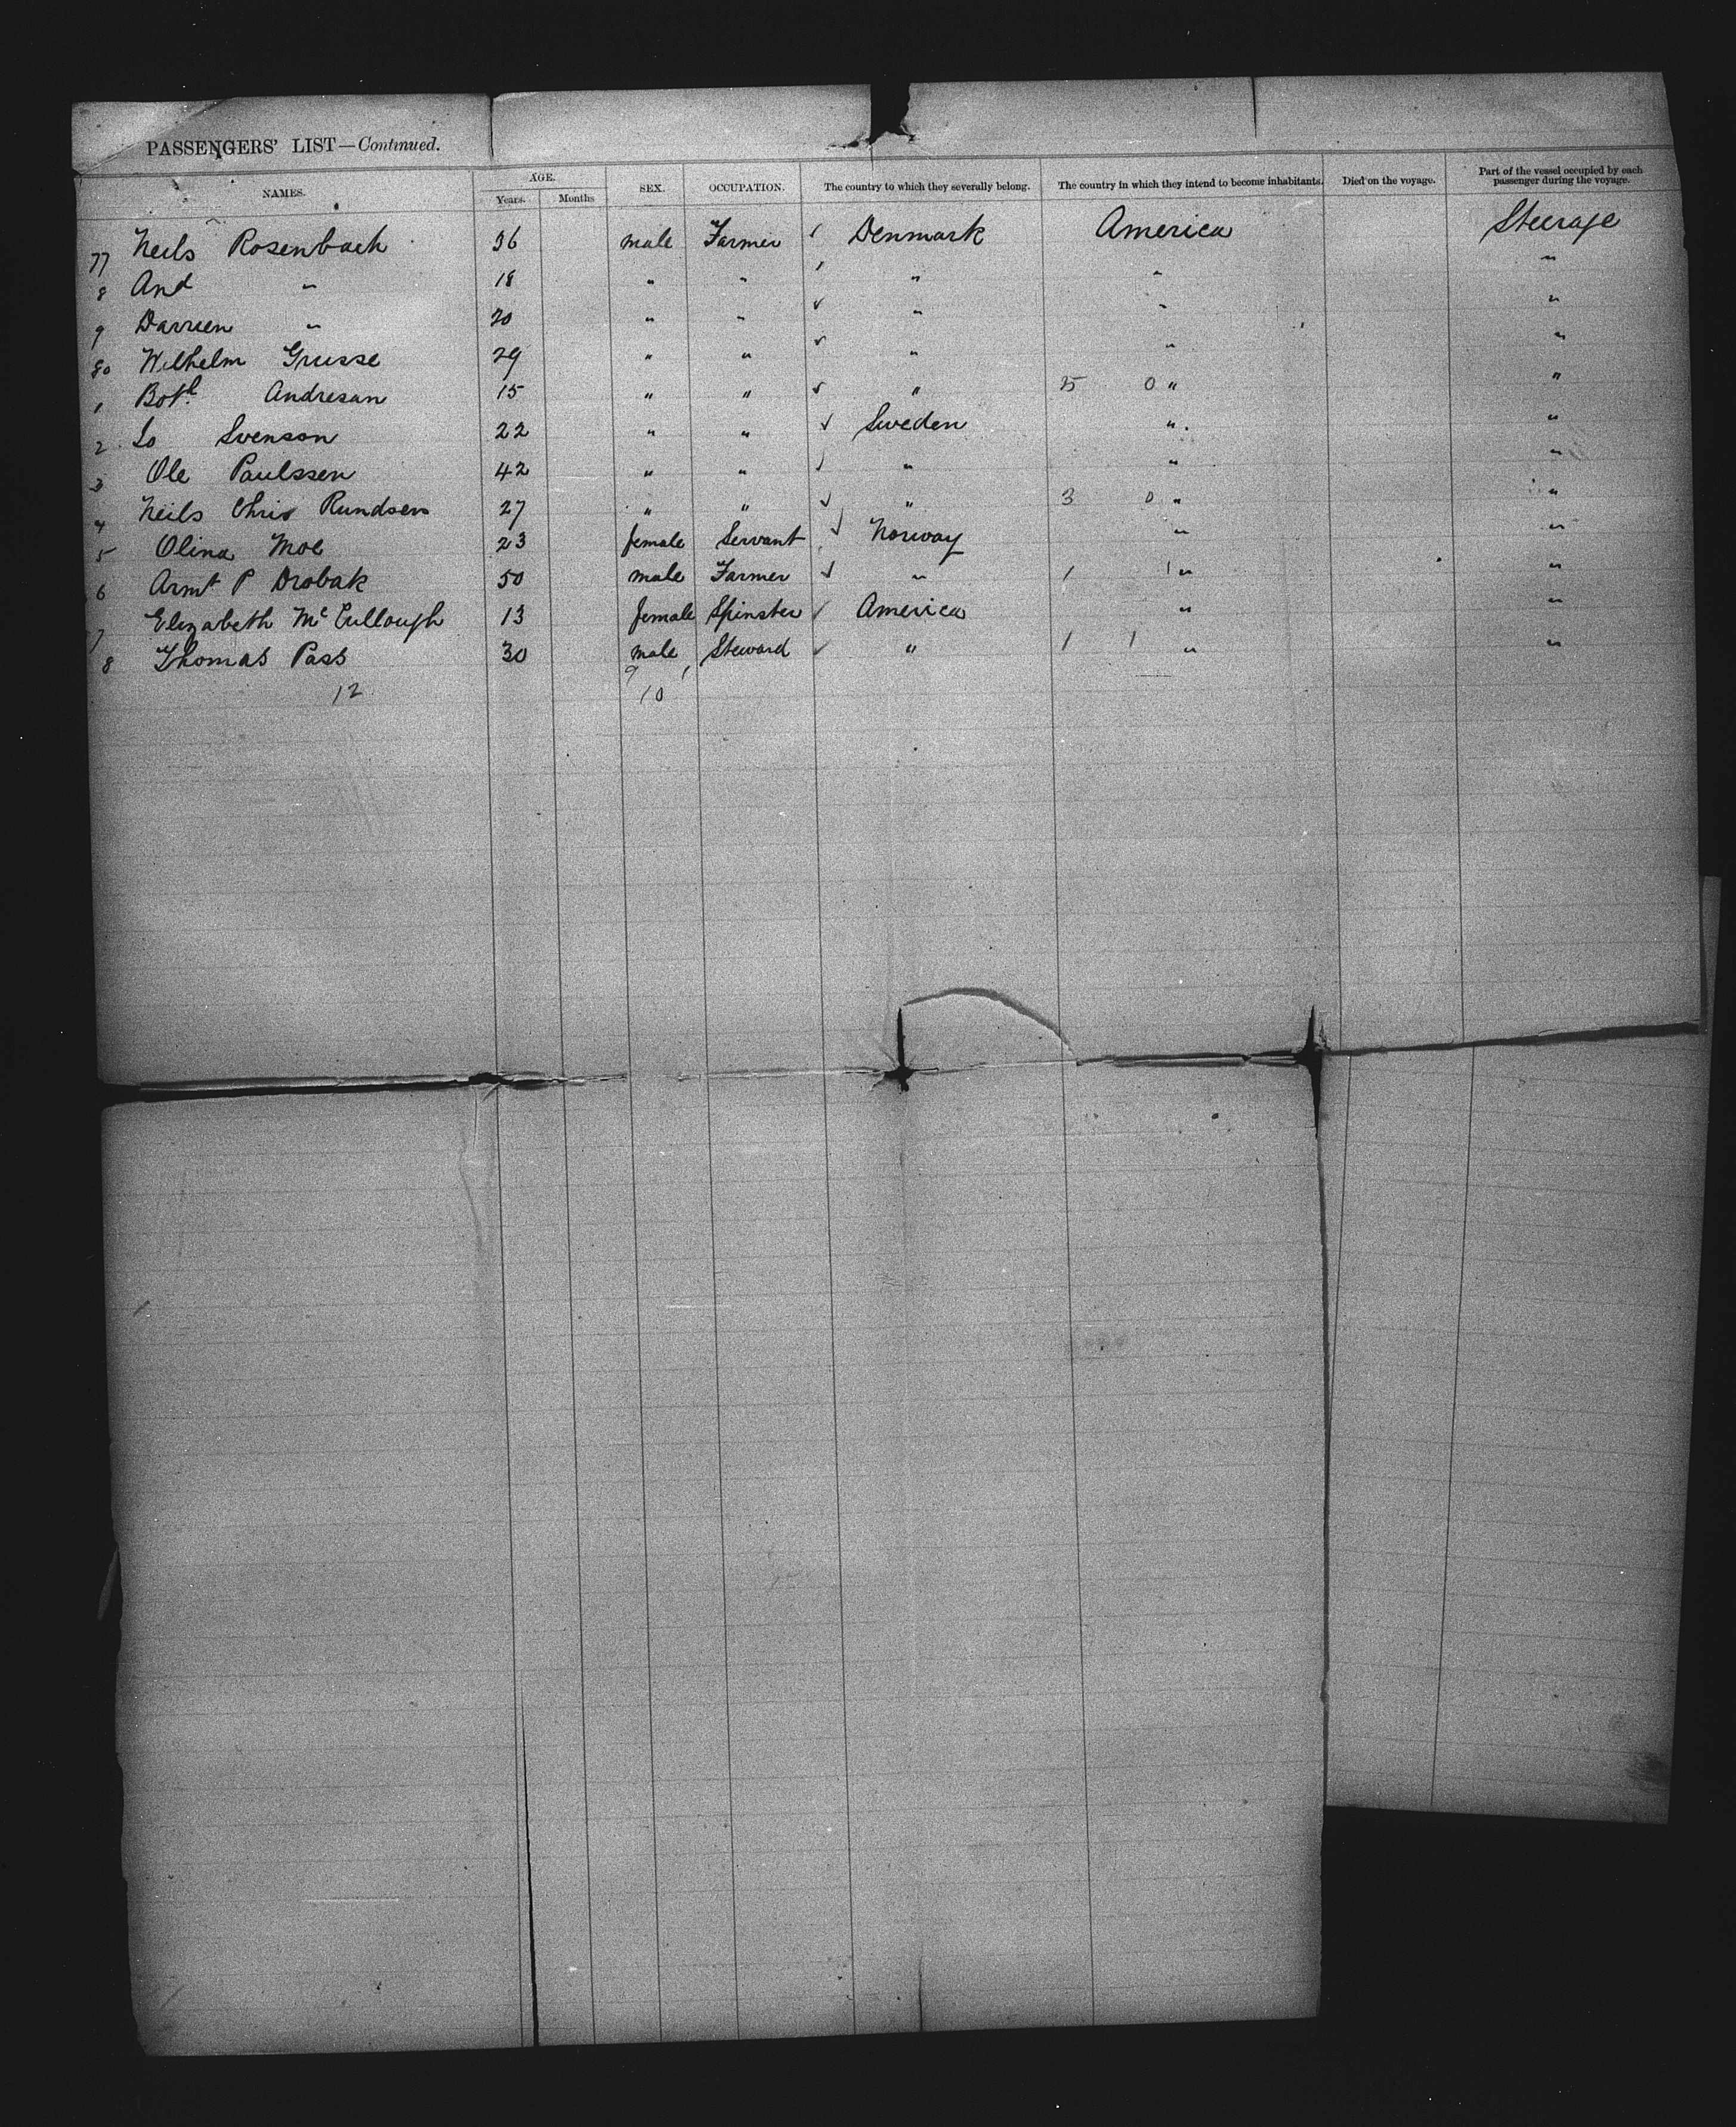 PASSENGERS' LIST—Continued.
NAMES. AGE. Years. Months SEX. OCCUPATION. The country to which they severally belong. The country in which they intend to become inhabitants. Died on the voyage. Part of the vessel occupied by each passenger during the voyage.
77 Neils Rosenbach 36 male Farmer / Denmark America Steerage
8 And " 18 " " / " " "
9 " 20 " " ✓ " " "
80 Wilhelm Grusse 29 " " ✓ " " "
1 Andresan 15 " " ✓ " 5 0 " "
2 So Svenson 22 " " ✓ Sweden " "
3 Ole Paulssen 42 " " ✓ " " "
4 Neils Chris Rundsen 27 " " ✓ " 3 0 " "
5 Olina Moe 23 female Servant ✓ Norway " "
6 Armt P Drobak 50 male Farmer ✓ " 1 1 " "
7 Elizabeth Mc Cullough 13 female Spinster ✓ America " "
8 Thomas Pass 30 male Steward ✓ " 1 1 " "
9 1
12 10